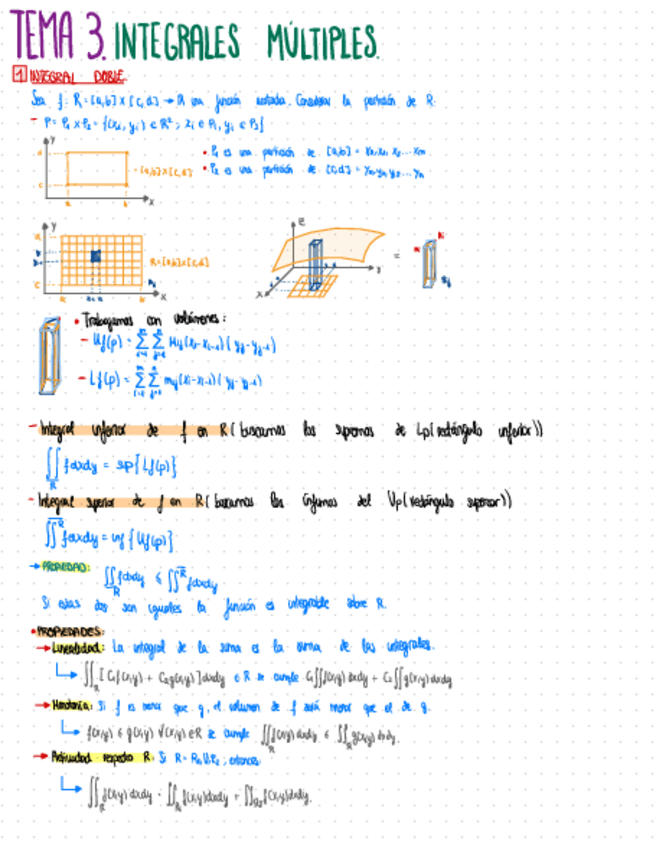 TEMA 3. INTEGRALES MÚLTIPLES.
1 INTEGRAL DOBLE.
Sea f: R=[a,b]x[c,d] → R una función acotada. Considerar la partición de R.
- P= P₁ x P₂ = {(xi, yi) ∈ R²; xi ∈ P₁, yi ∈ P₂}
• P₁ es una partición de [a,b] =
• P₂ es una partición de [c,d] =
y
d
c
a
b
x
= [a,b]x[c,d]
y
c
a
b
x
R=[a,b]x[c,d]
z
y
x
=
• Trabajamos con volúmenes:
- Uf(p) = Σ Σ Mij(xi-xi-1)(yj-yj-1)
- Lf(p) = Σ Σ mij(xi-xi-1)(yj-yj-1)
- Integral inferior de f en R (buscamos los supremos de Lp(rectángulo inferior))
∬ fdxdy = sup{Lf(p)}
R
- Integral superior de f en R (buscamos los ínfimos del Up(rectángulo superior))
∬ fdxdy = inf{Uf(p)}
→ PROPIEDAD: ∬ fdxdy ≤ ∬ fdxdy
Si estas dos son iguales la función es integrable sobre R.
• PROPIEDADES:
→ Linealidad: La integral de la suma es la suma de las integrales.
∬R [C₁f(x,y) + C₂g(x,y)]dxdy ∈ R se cumple C₁∬f(x,y)dxdy + C₂∬g(x,y)dxdy
→ Monotonía: Si f es menor que g, el volumen de f será menor que el de g.
f(x,y) ≤ g(x,y) ∀(x,y)∈R se cumple ∬R f(x,y)dxdy ≤ ∬R g(x,y)dxdy.
→ Aditividad respecto R: Si R= R₁UR₂, entonces:
∬R f(x,y)dxdy = ∬R₁ f(x,y)dxdy + ∬R₂ f(x,y)dxdy.